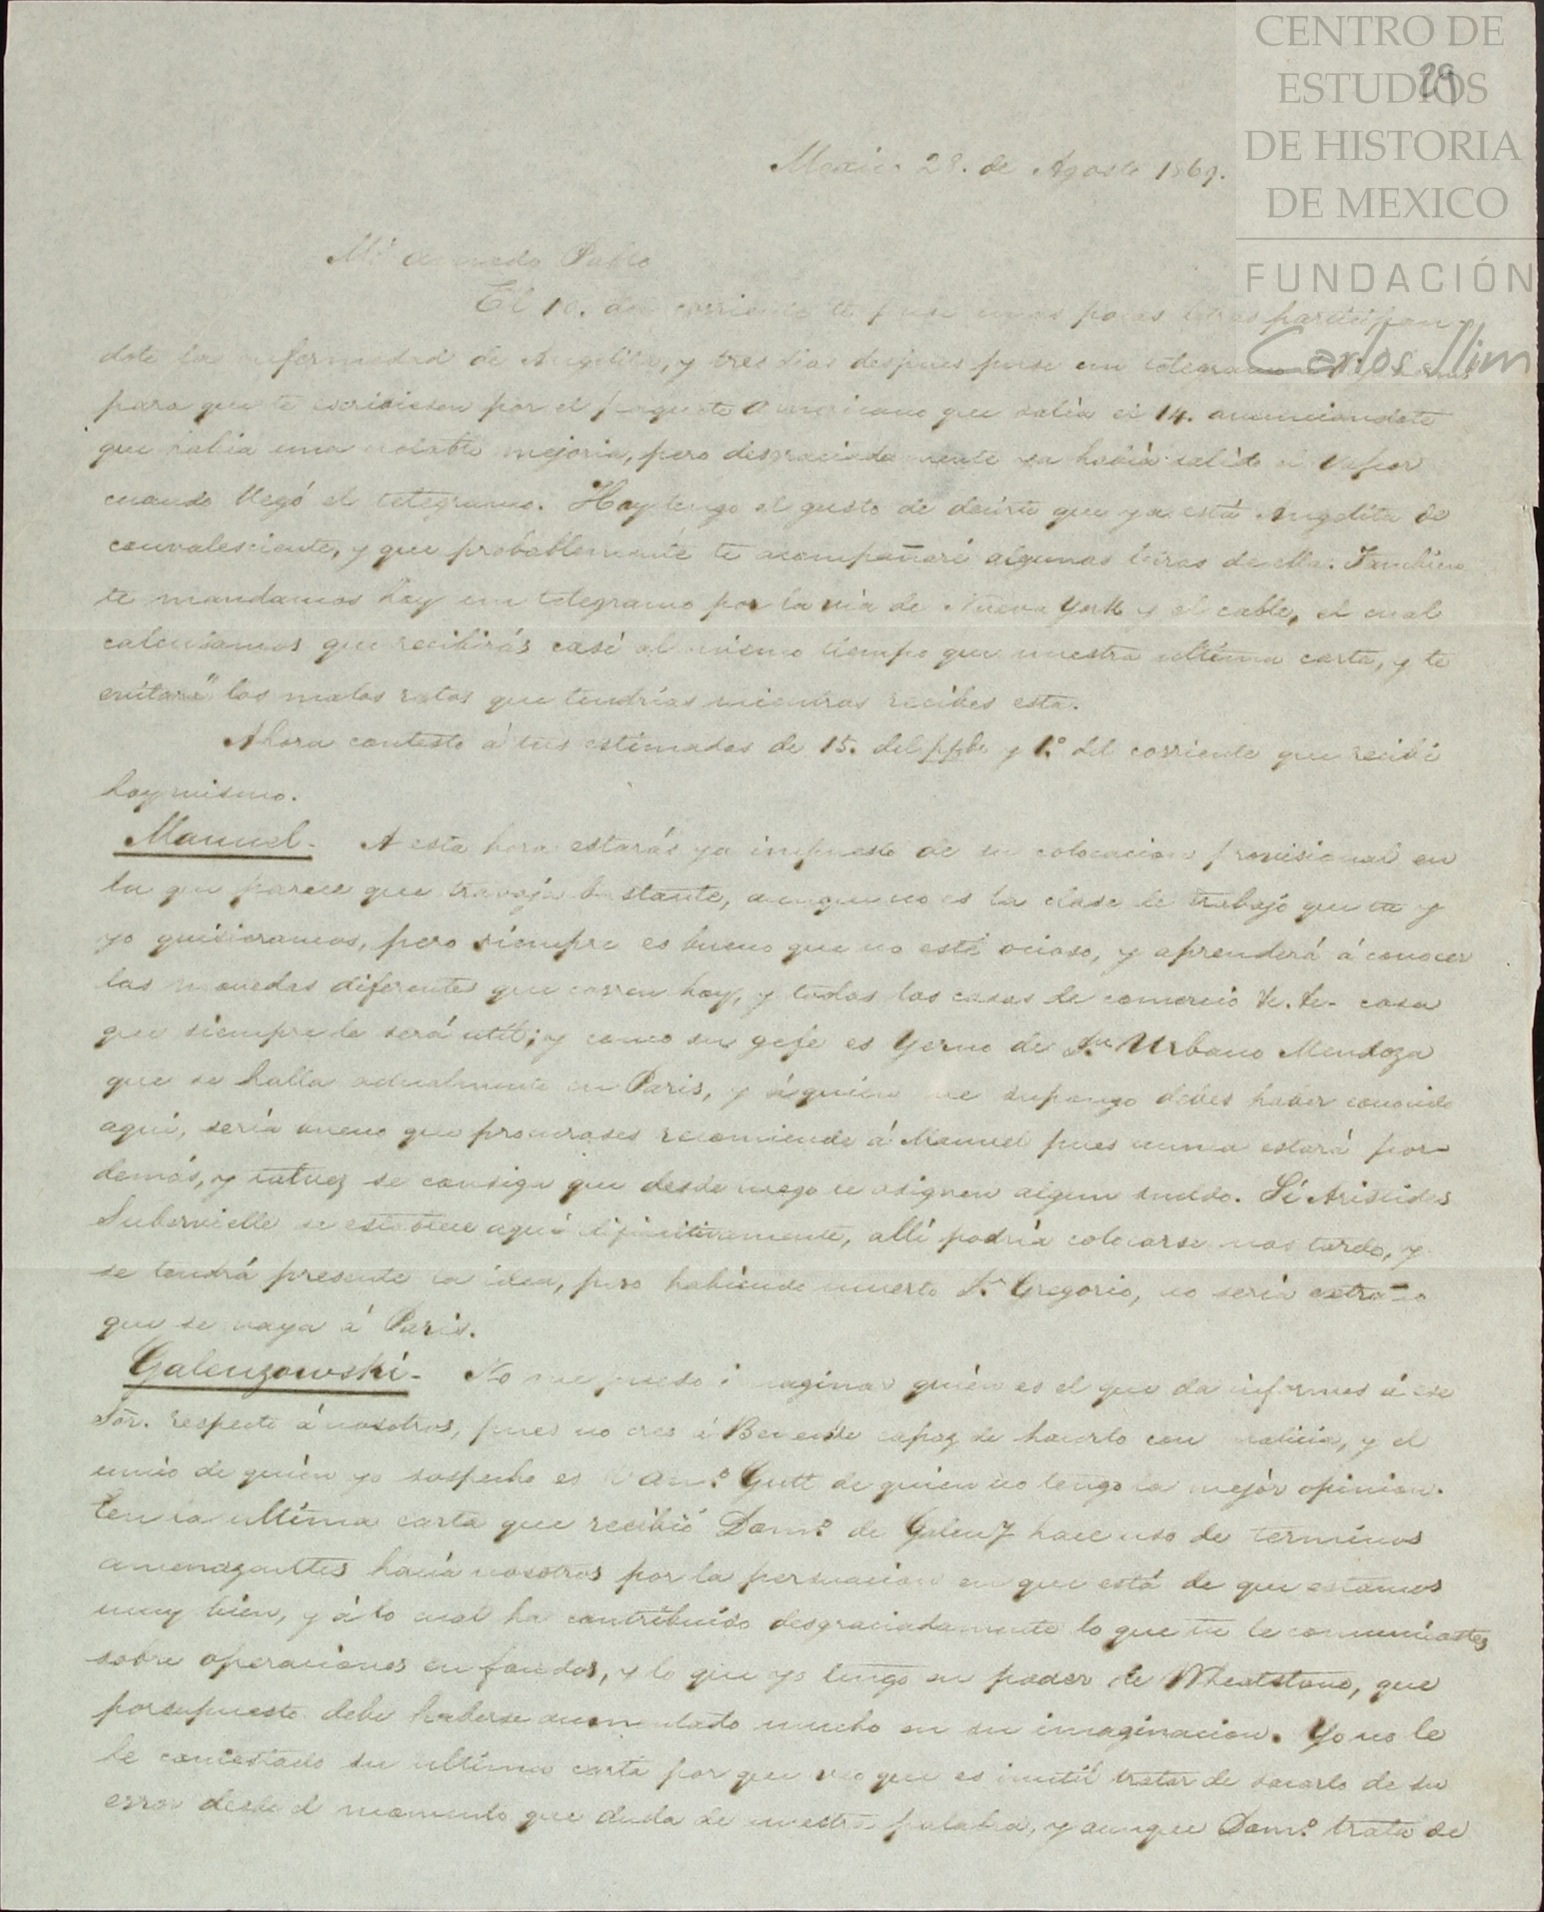 CENTRO DE
ESTUDIOS
29
DE HISTORIA
DE MEXICO
FUNDACIÓN
Carlos Slim
Mexico 28. de Agosto 1869.
Mi amado Pablo
El 10. del corriente te puse unas pocas letras participan-
dote la enfermedad de Angelita, y tres dias despues puse un telegrama
para que te escribiesen por el paquete Americano que salia el 14. anunciandote
que habia una notable mejoria, pero desgraciadamente ya habia salido el vapor
cuando llegó el telegrama. Hoy tengo el gusto de decirte que ya está Angelita de
convalesciente, y que probablemente te acompañaré algunas letras de ella. Tambien
te mandamos hoy un telegrama por la via de Nueva York y el cable, el cual
calculamos que recibirás casi al mismo tiempo que nuestra ultima carta, y te
evitará los malos ratos que tendrias mientras recibes esta.
Ahora contesto á tus estimadas de 15. del ppdo y 1.º del corriente que recibi
hoy mismo.
Manuel- A esta hora estarás ya impuesto de su colocacion provisional en
la que parece que travaja bastante, aunque no es la clase de trabajo que tu y
yo quisieramos, pero siempre es bueno que no esté ocioso, y aprenderá á conocer
las monedas diferentes que corren hoy, y todas las casas de comercio &. &- cosa
que siempre le será util; y como su gefe es yerno de Dn Urbano Mendoza
que se halla actualmente en Paris, y á quien me supongo debes haber conocido
aqui, sería bueno que procurases recomiende á Manuel pues nunca estará por-
demás, y talvez se consiga que desde luego le asignen algun sueldo. Si Aristides
Subervielle se establece aqui difinitivamente, allí podria colocarse mas tarde, y
se tendrá presente la idea, pero habiendo muerto Dn Gregorio, no sería extraño
que se vaya á Paris.
Galenzowski- No me puedo imaginar quién es el que da informes á ese
Sor. respecto á nosotros, pues no creo á Benecke capaz de hacerlo con malicia, y el
unico de quién yo sospecho es Gutt de quien no tengo la mejor opinion.
En la ultima carta que recibió Domo. de Galenz hace uso de terminos
amenazantes hacia nosotros por la persuacion en que está de que estamos
muy bien, y á lo cual ha contribuido desgraciadamente lo que tu le comunicastes
sobre operaciones en fondos, y lo que yo tengo en poder de Wheatstone, que
porsupuesto debe haberse aumentado mucho en su imaginacion. Yo no le
he contestado su ultima carta por que veo que es inutil tratar de sacarlo de su
error desde el momento que duda de nuestra palabra, y aunque Domo. trata de